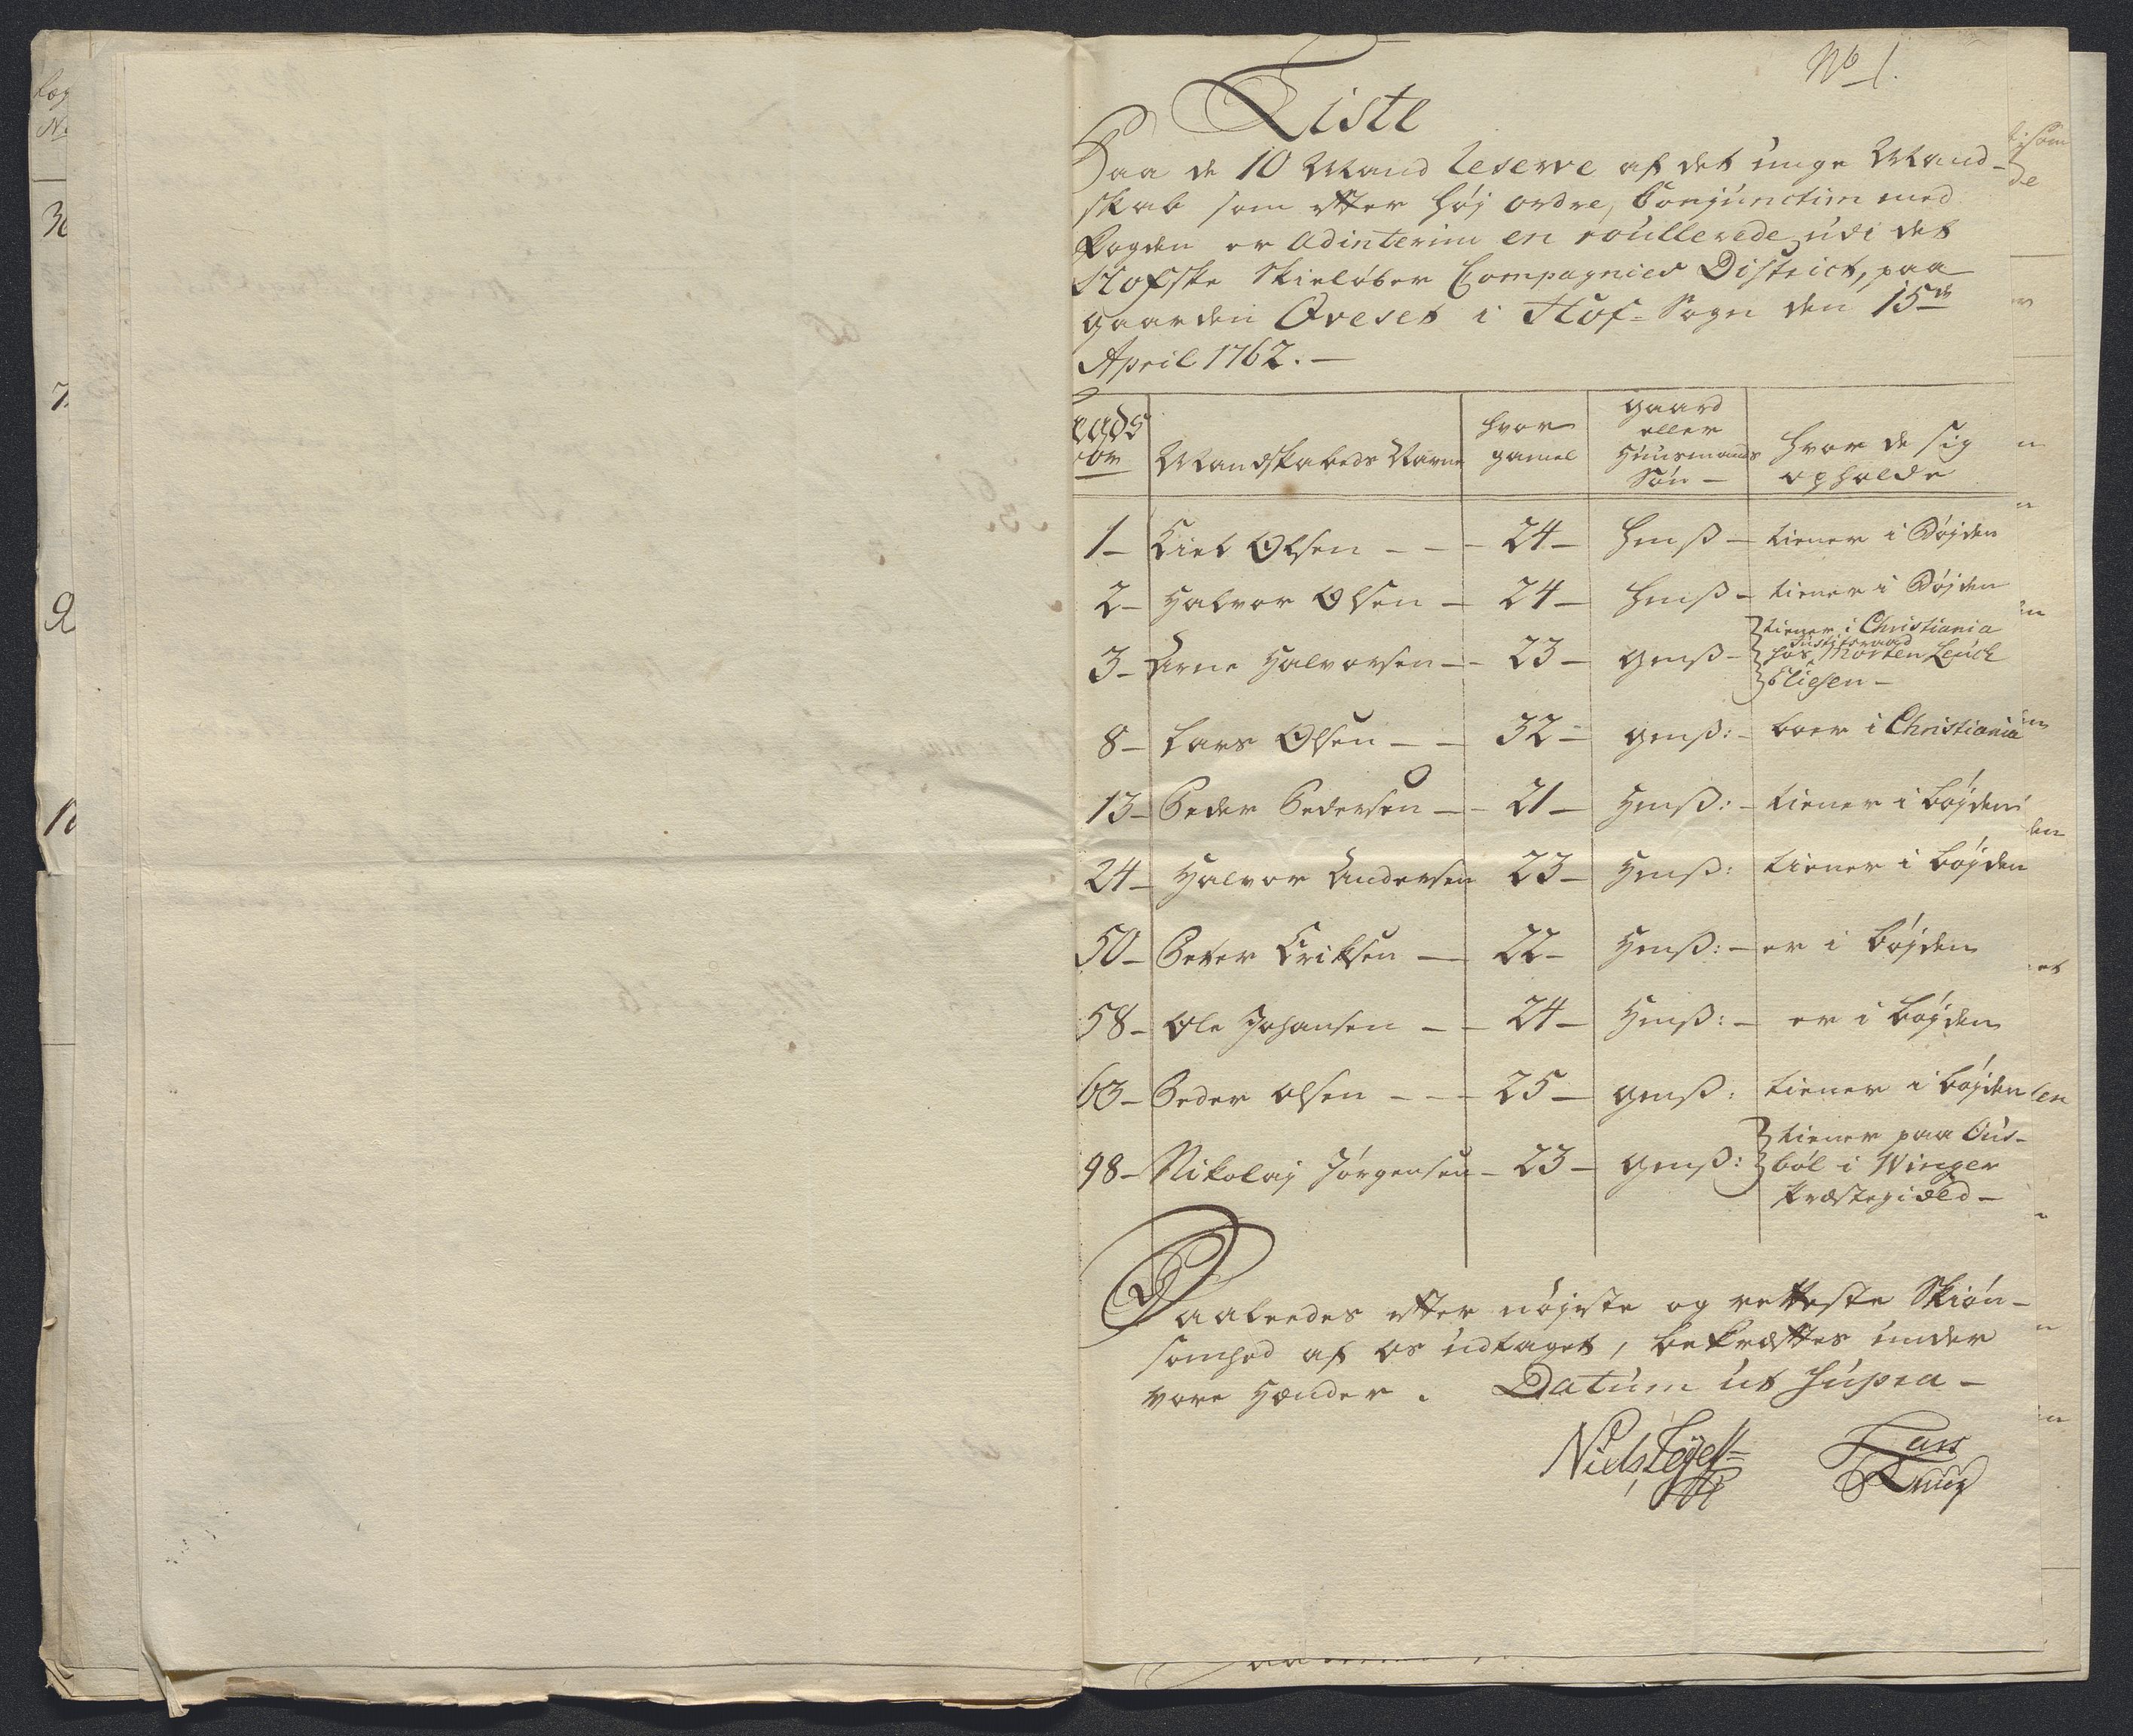 No 1.
Liste
Paa de 10 Mand Reserve af det unge Mand-
skab som efter høj ordre, Conjunctim med
Fogden er Adinterim en roullerede udi det
Hofske Skieløber Compagnies District, paa
gaarden Øveset i Hof-Sogn den 15de
April 1762.—
Lægds
No
Mandskabeds Navne
hvor
gamel
gaard
eller
Huusmands
Søn —
hvor de sig
opholde
1 — Kiel Olsen — — 24 — Hmß — tiener i Bøjden
2 — Halvor Olsen — 24 — Hmß — tiener i Bøjden
3 — Arne Halvorsen — 23 — gmß — tiener i Christiania
hos Justiteraad Morten Leuch
Eliesen —
8 — Lars Olsen — — 32 — gmß: — boer i Christiania
13 — Peder Pedersen — 21 — Hmß: — tiener i bøjden
24 — Halvor Andersen 23 — Hmß: tiener i bøjden
50 — Peter Eriksen — 22 — Hmß: — er i bøjden
58 — Ole Johansen — 24 — Hmß: — er i bøjden
63 — Peder Olsen — — 25 — gmß: tiener i bøjden
98 — Nikolaj Jørgensen — 23 — gmß: tiener paa Ous-
bøl i Winger
Præstegiæld —
Saaleedes efter nøjeste og retteste Skiøn-
somhed af os udtaget, bekræftes under
vore Hænder. Datum ut Supra —
Niels
Lars